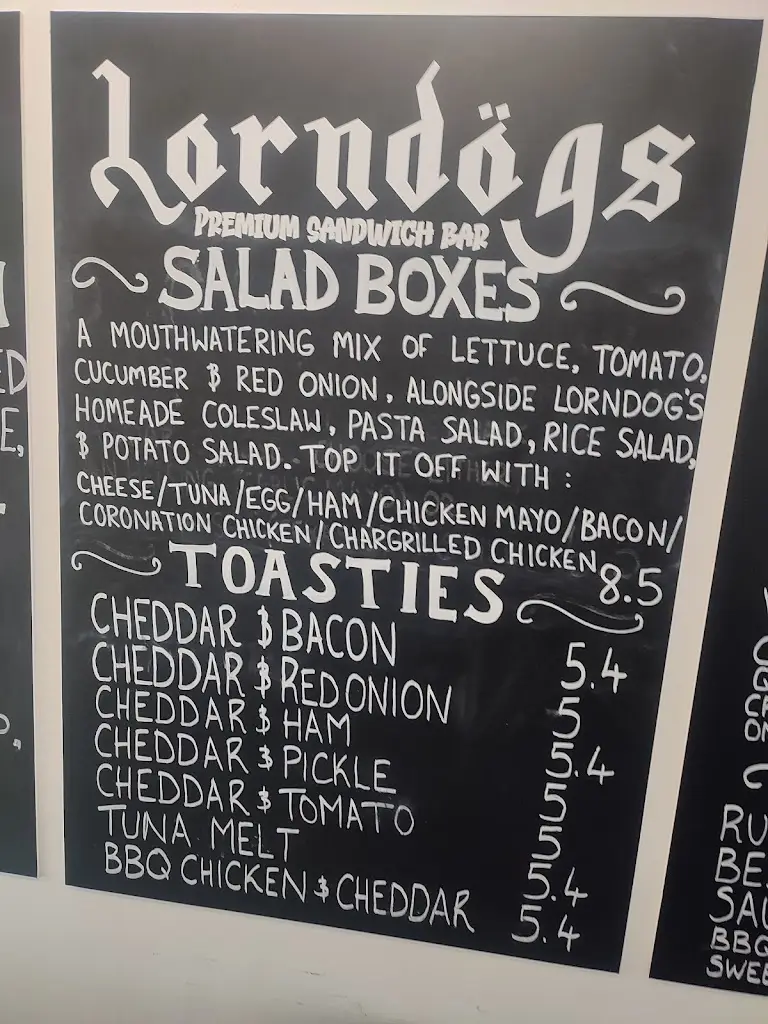 Lorndögs
PREMIUM SANDWICH BAR
SALAD BOXES
A MOUTHWATERING MIX OF LETTUCE, TOMATO,
CUCUMBER & RED ONION, ALONGSIDE LORNDOG'S
HOMEADE COLESLAW, PASTA SALAD, RICE SALAD,
& POTATO SALAD. TOP IT OFF WITH :
CHEESE/TUNA/EGG/HAM/CHICKEN MAYO/BACON/
CORONATION CHICKEN/CHARGRILLED CHICKEN 8.5
TOASTIES
CHEDDAR & BACON 5.4
CHEDDAR & RED ONION 5
CHEDDAR & HAM 5.4
CHEDDAR & PICKLE 5
CHEDDAR & TOMATO 5
TUNA MELT 5.4
BBQ CHICKEN & CHEDDAR 5.4
ED
E,
RU
BE
SAU
BBQ
SWEE